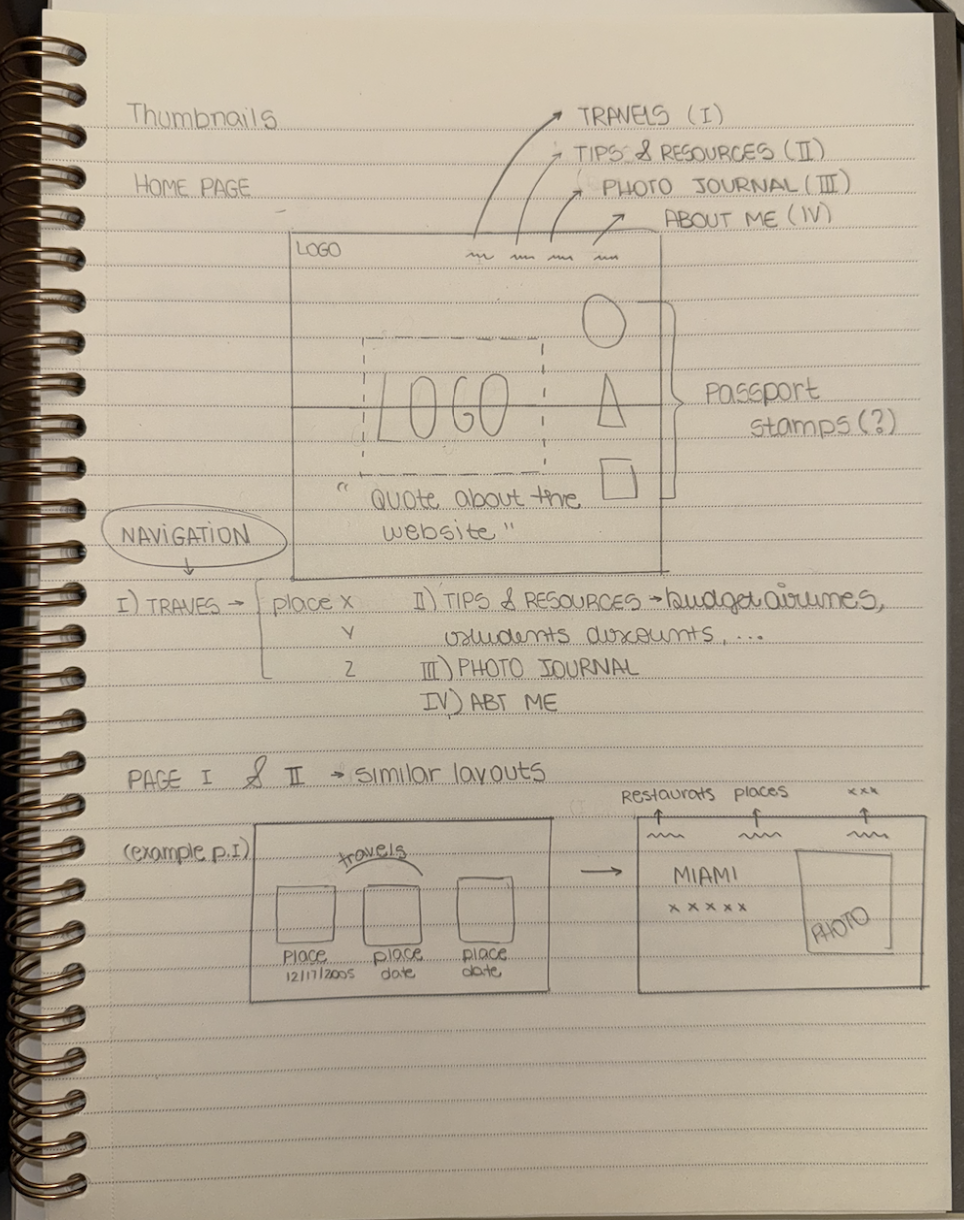 Thumbnails
TRAVELS (I)
TIPS & RESOURCES (II)
HOME PAGE
PHOTO JOURNAL (III)
ABOUT ME (IV)
LOGO
LOGO
Passport
stamps (?)
" Quote about the
website"
NAVIGATION
I) TRAVES → place x
Y
Z
II) TIPS & RESOURCES → budget airlines,
students discounts, ...
III) PHOTO JOURNAL
IV) ABT ME
PAGE I & II → similar layouts
(example p.I)
travels
Place
12/17/2005
place
date
place
date
Restaurats places xxx
MIAMI
x x x x x
PHOTO